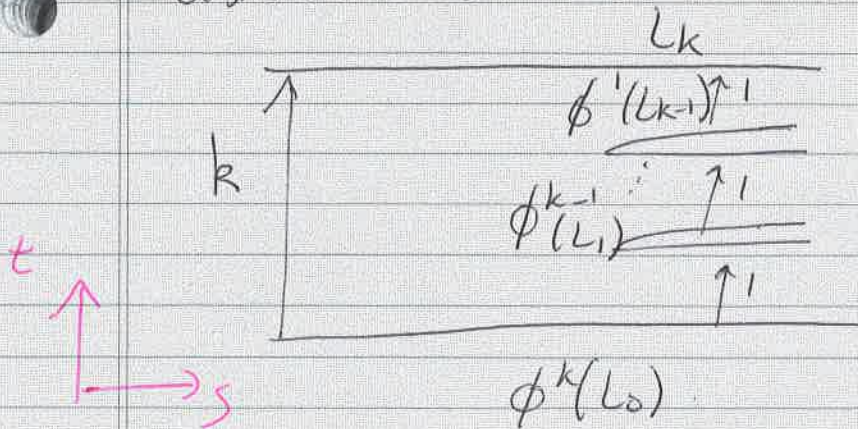 L_k
φ^1(L_{k-1}) 1
k
φ^{k-1}(L_1) 1
t
1
s
φ^k(L_0)